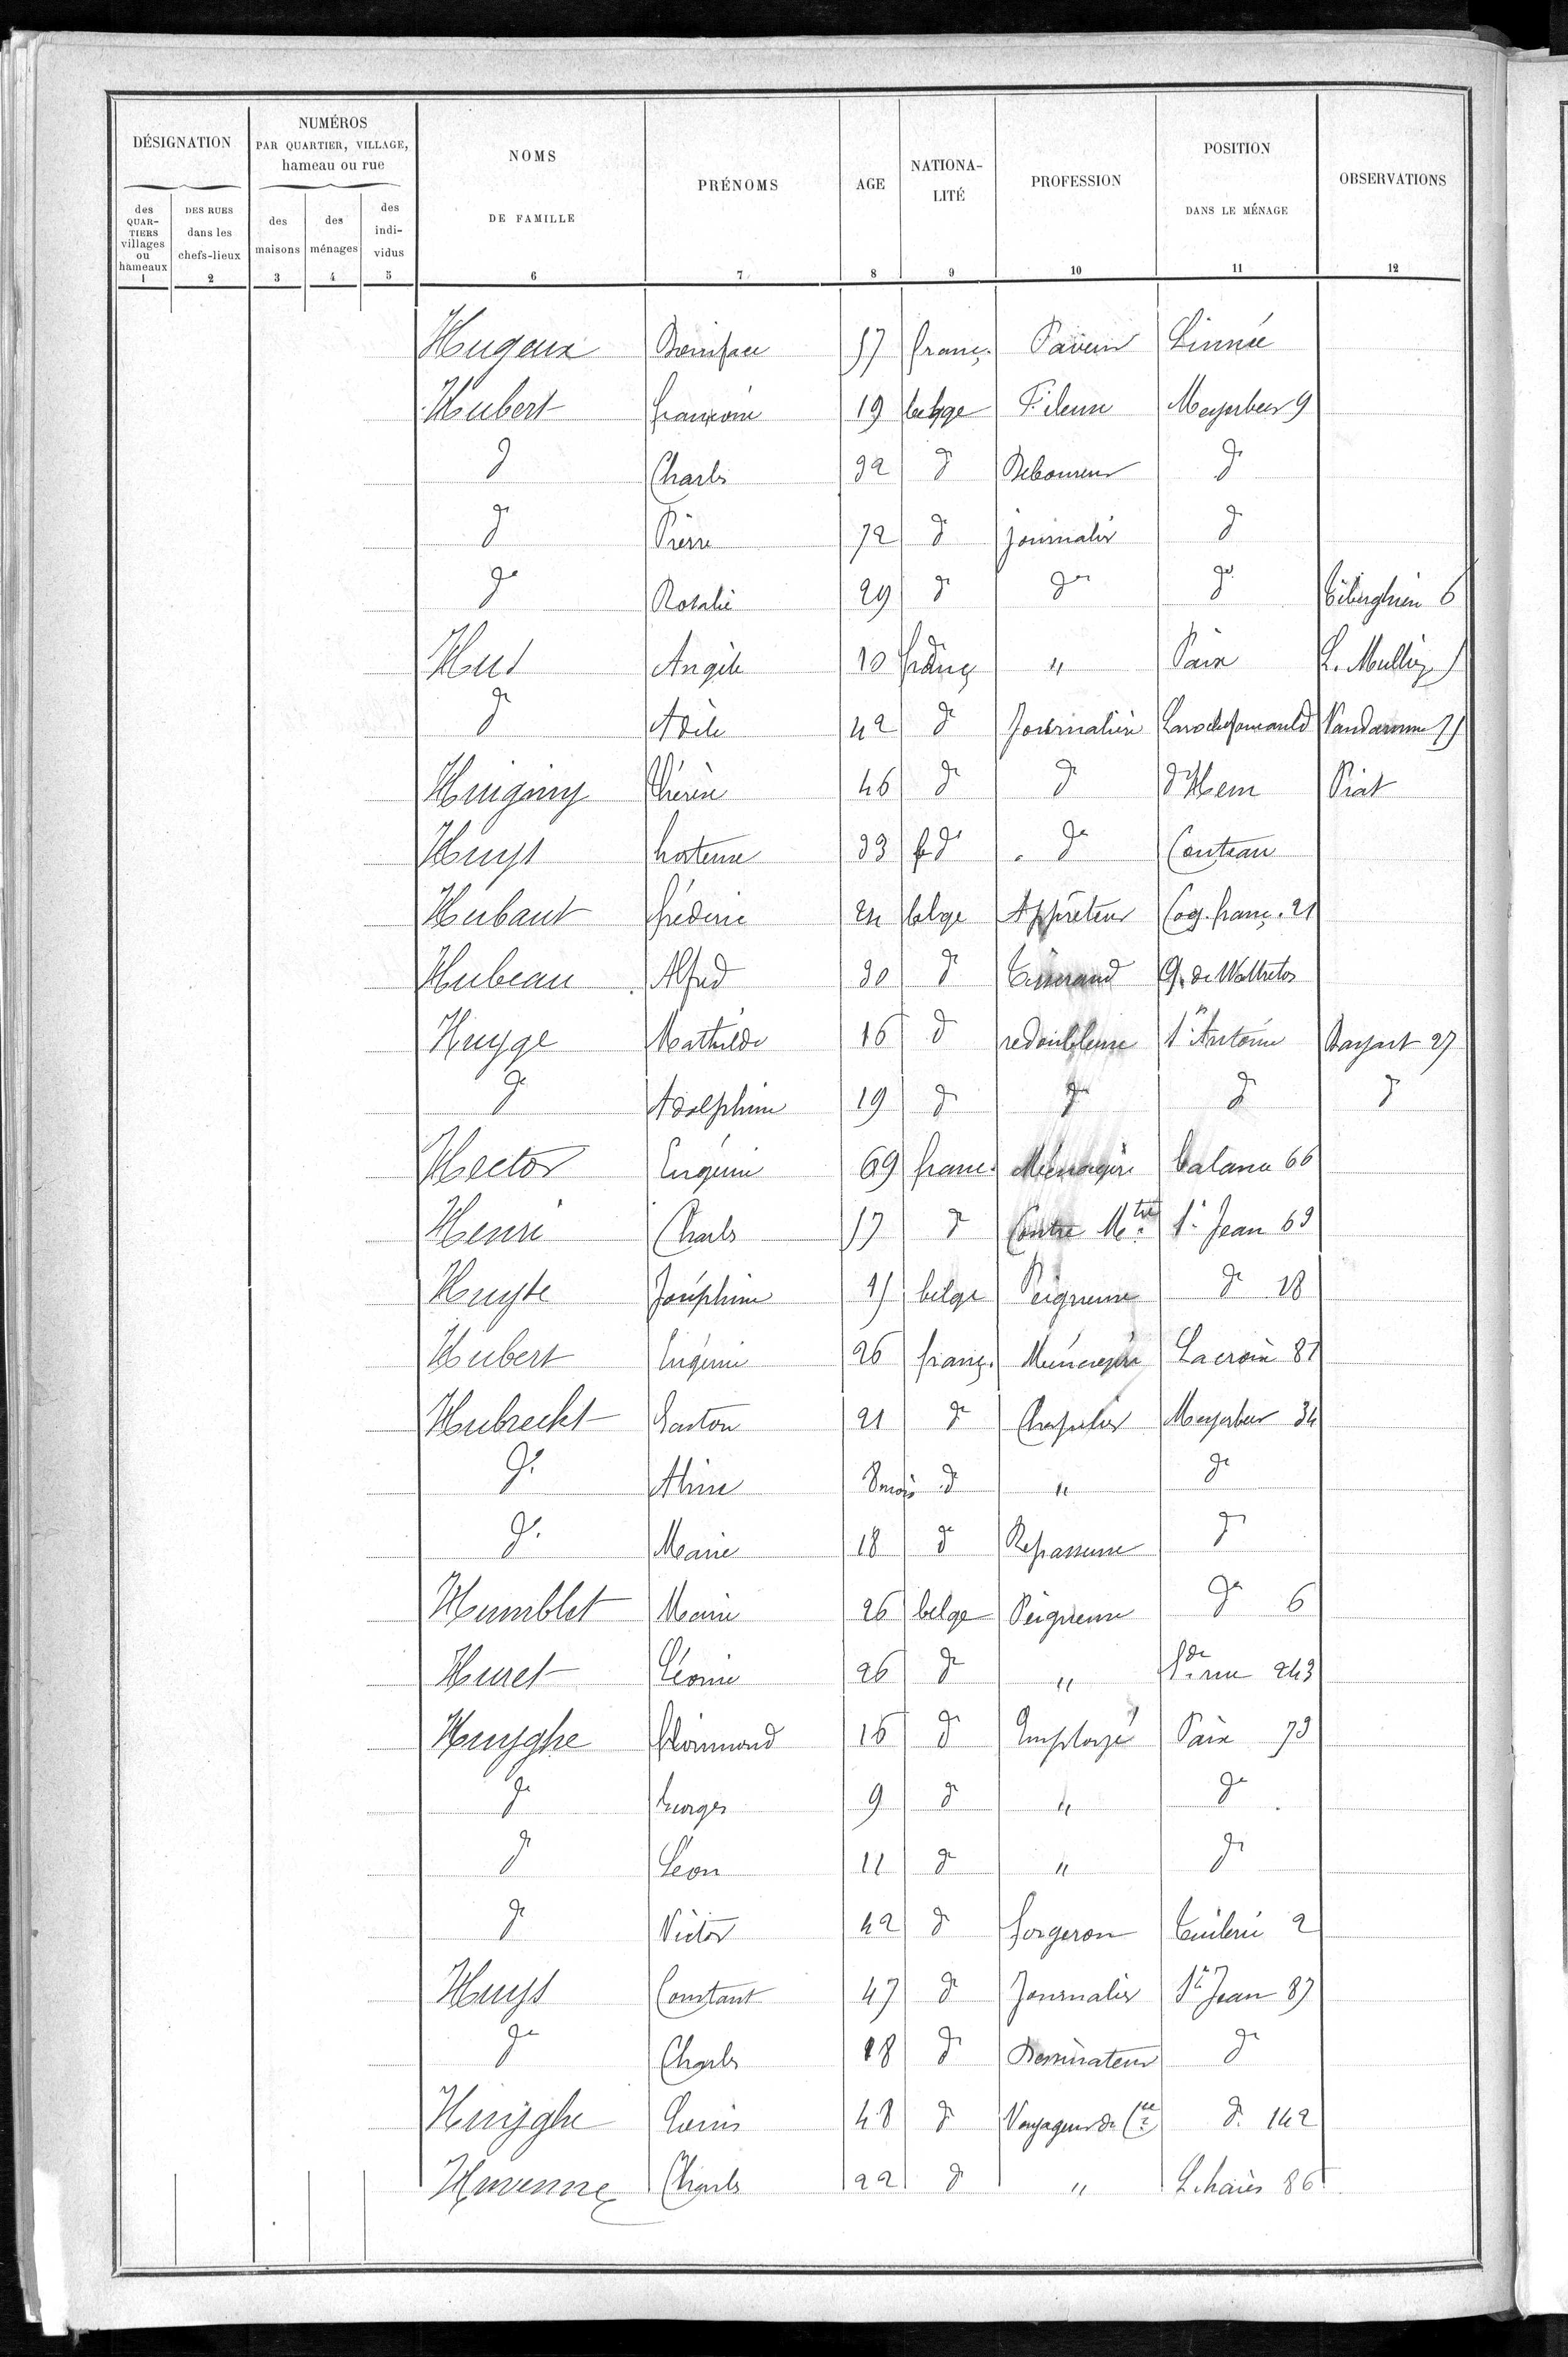 DÉSIGNATION
NUMÉROS
PAR QUARTIER, VILLAGE,
hameau ou rue
NOMS
DE FAMILLE
PRÉNOMS
AGE
NATIONA-
LITÉ
PROFESSION
POSITION
DANS LE MÉNAGE
OBSERVATIONS
des
QUAR-
TIERS
villages
ou
hameaux
DES RUES
dans les
chefs-lieux
des
maisons
des
ménages
des
indi-
vidus
1 2 3 4 5 6 7 8 9 10 11 12
Hugeux Boniface 57 franç. Paveur Linnée
Hubert françoise 19 belge Fileuse Meyerbeer 9
d Charles 32 d Deboureur d
d Pierre 72 d journalier d
d Rosalie 29 d d d Tiberghien 6
Hus Angèle 10 franç " Paix L. Mulliez
d Adèle 42 d Journalière Larochefoucauld
Huigimy thérèse 46 d d d'Hem Piat
Huys hortense 33 d d Couteau
Hubaut fréderic 24 belge Apprêteur Coq. franç. 21
Hubeau Alfred 30 d Tisserand G. de Wattrelos
Huyge Mathilde 16 d redoubleuse St Antoine Bayart 27
d Adolphine 19 d d d d
Hector Eugénie 69 franc. Ménagère Catane 66
Henri Charles 57 d Contre Mtre St Jean 69
Huyse Joséphine 45 belge Peigneuse d 18
Hubert Eugénie 26 franç. Ménagère Lacroix 81
Hubrecht Gaston 21 d Chapelier Meyerbeer 34
d Aline 8 mois d " d
d Marie 18 d Repasseuse d
Humblet Marie 26 belge Peigneuse d 6
Huret Léonie 26 d " Gde rue 243
Huyghe florimond 16 d Employé Paix 73
d Georges 9 d " d
d Léon 11 d " d
d Victor 42 d forgeron Tuilerie 2
Huys Constant 47 d Journalier St Jean 87
d Charles 18 d Dessinateur d
Huyghe Louis 48 d Voyageur de Cce d. 142
Huvenne Charles 22 d " L. haies 86